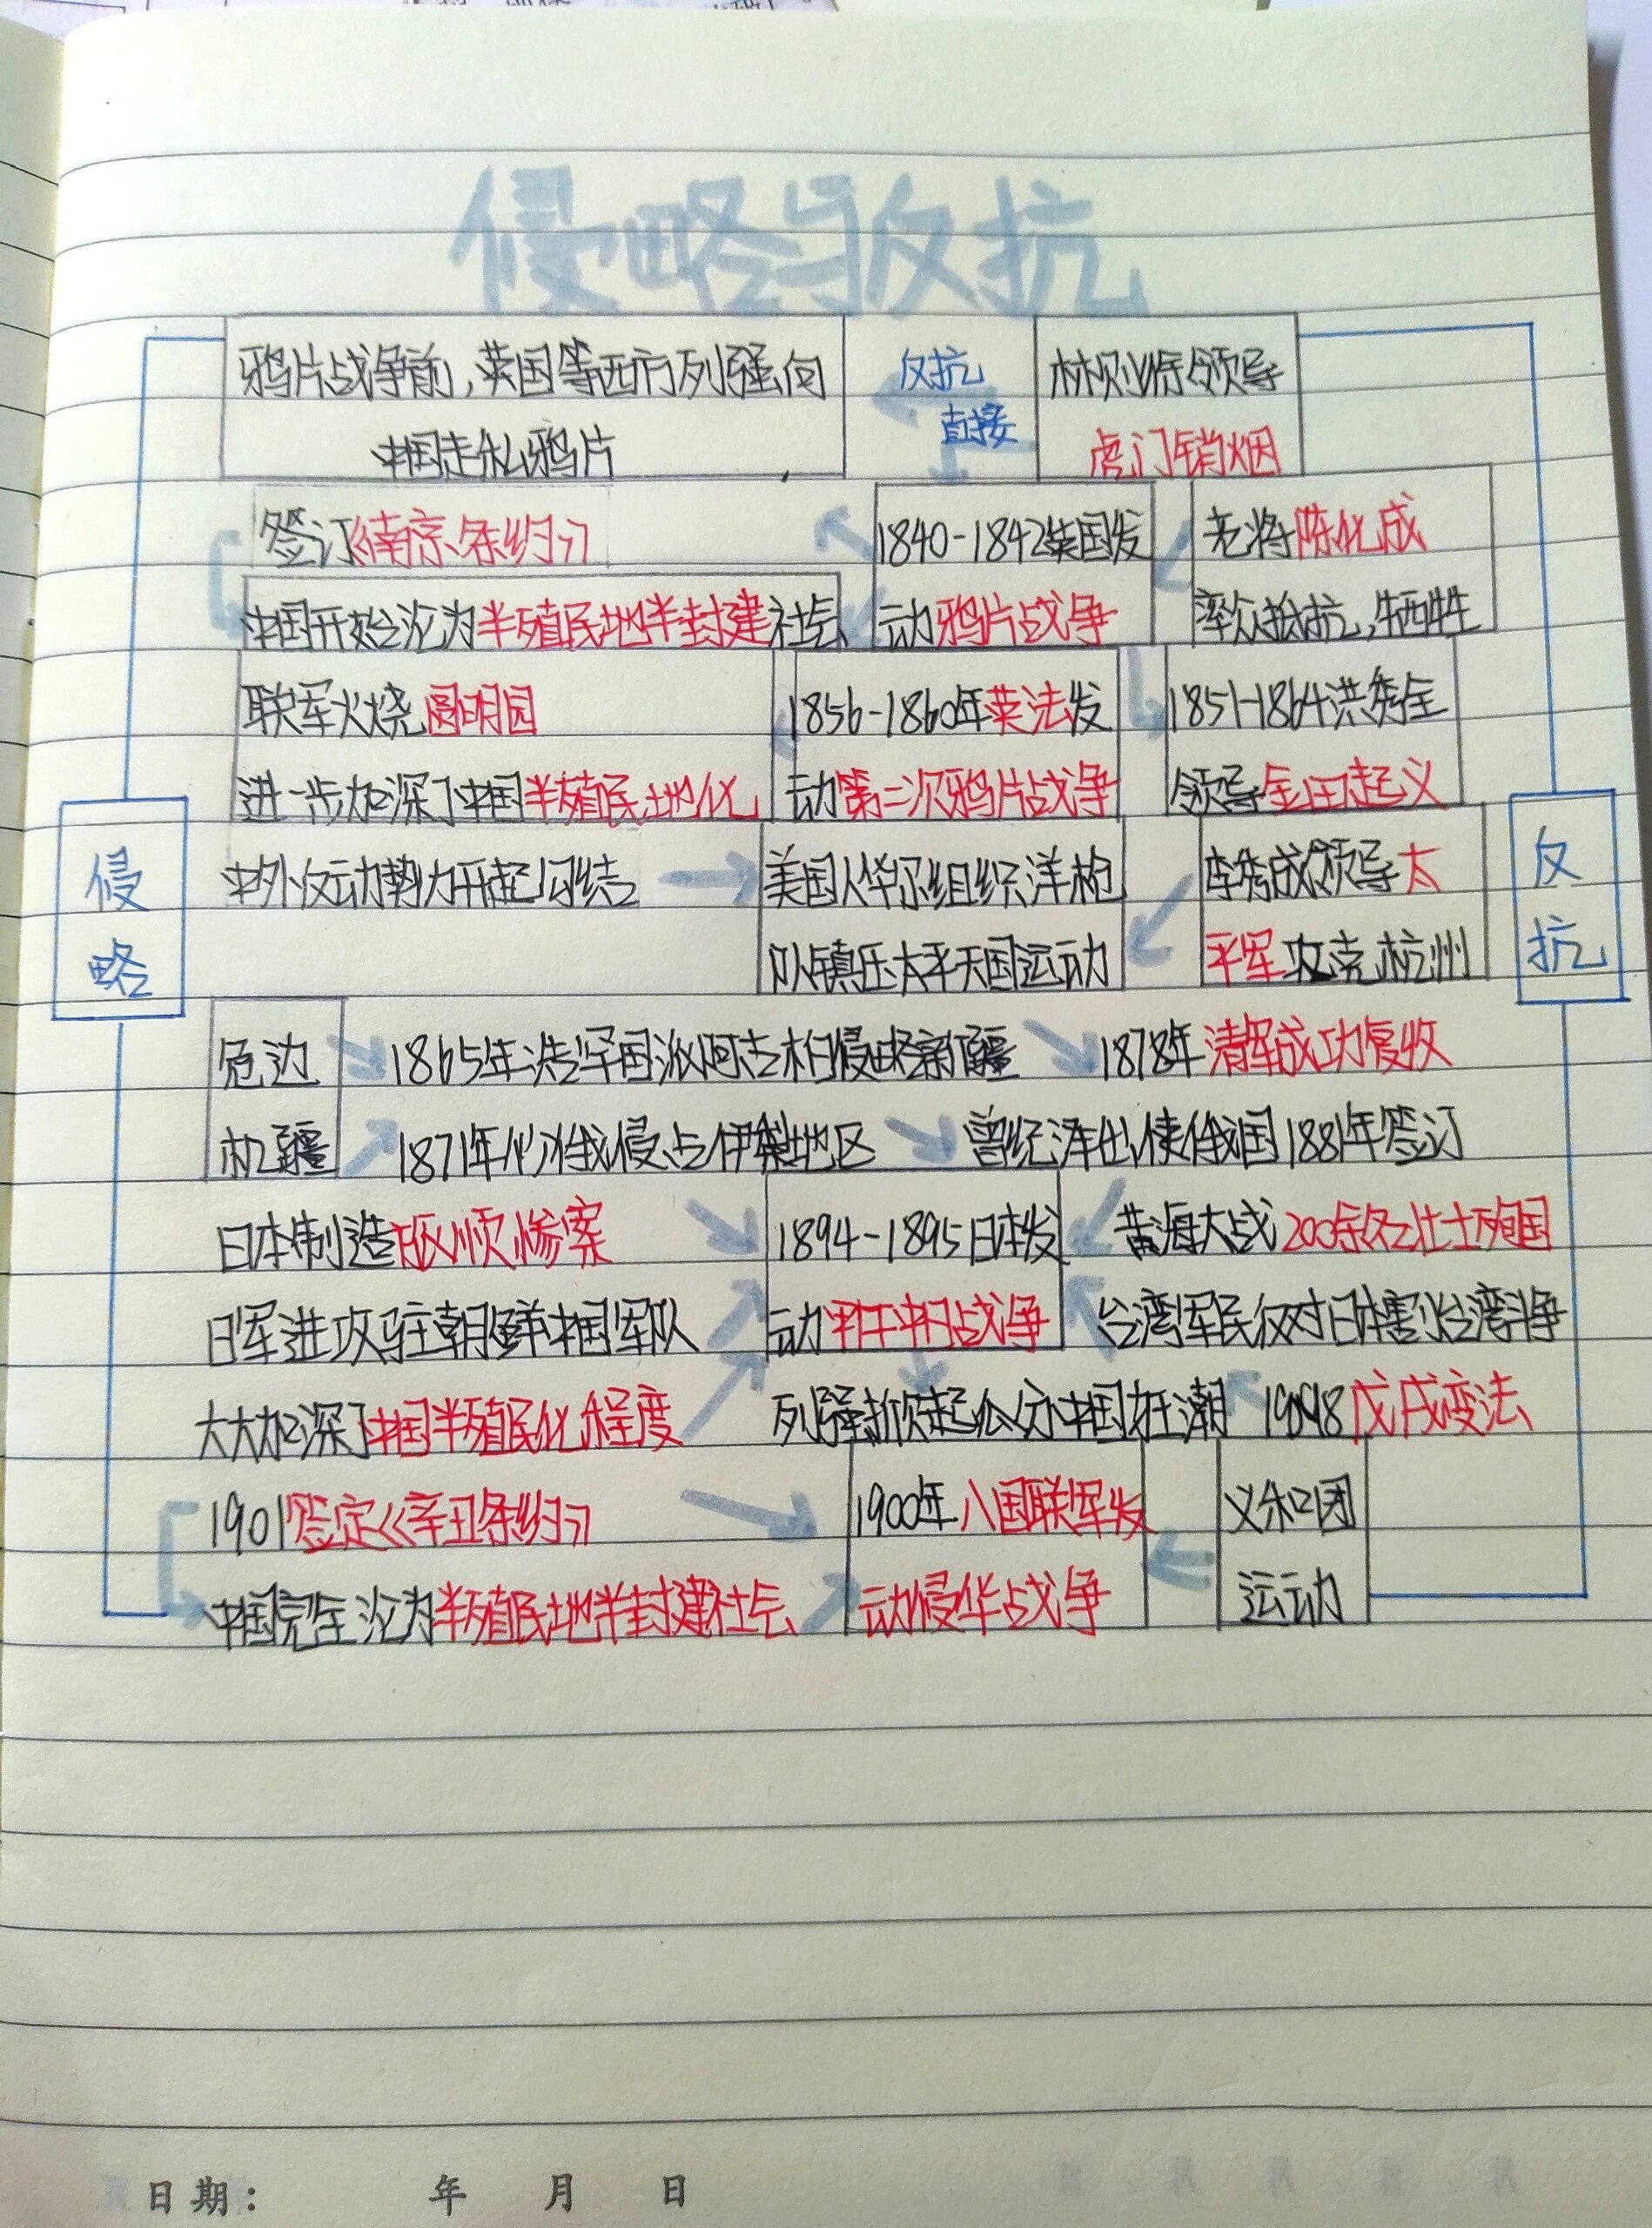 侵略与反抗
鸦片战争前,英国等西方列强向 反抗 林则徐领导
中国走私鸦片 直接 虎门销烟
签订《南京条约》 1840-1842英国发 老将陈化成
中国开始沦为半殖民地半封建社会 动鸦片战争 率众抵抗,牺牲
联军火烧圆明园 1856-1860年英法发 1851-1864洪秀全
进一步加深了中国半殖民地化 动第二次鸦片战争 领导金田起义
中外反动势力开起勾结 美国人华尔组织洋枪 李秀成领导太
侵略 队镇压太平天国运动 平军攻克杭州 反抗
危边 1865年浩罕国派阿古柏侵略新疆 1878年清军成功复收
机疆 1871年俄侵占伊犁地区 曾纪泽出使俄国1881年签订
日本制造旅顺惨案 1894-1895日本发 黄海大战200余名壮士殉国
日军进攻驻朝鲜中国军队 动甲午中日战争 台湾军民反对日本割占台湾斗争
大大加深了中国半殖民化程度 列强掀起瓜分中国狂潮 戊戌变法
1901签定《辛丑条约》 1900年八国联军发 义和团
中国完全沦为半殖民地半封建社会 动侵华战争 运动
日期: 年 月 日